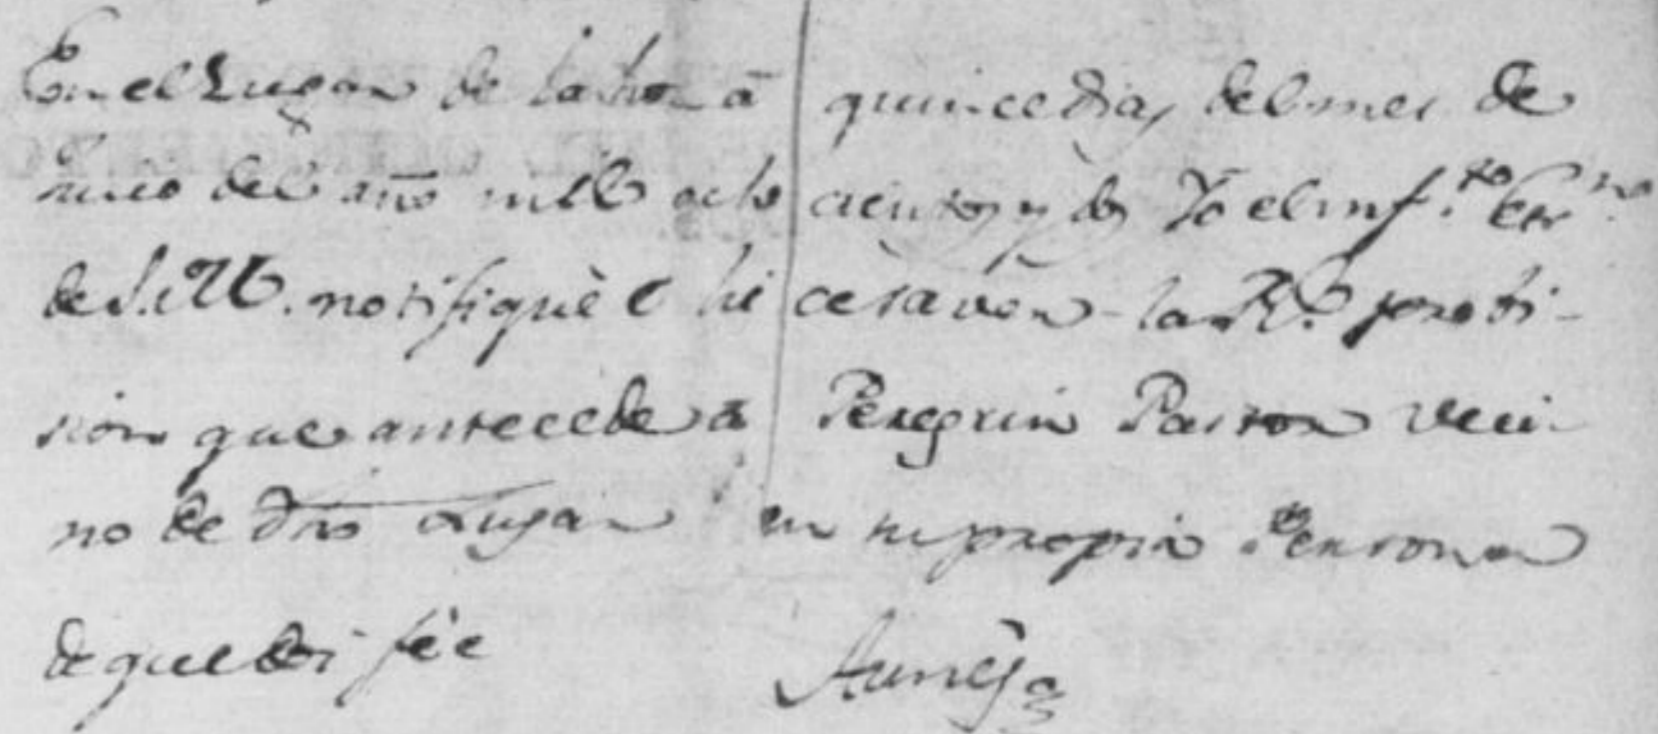 En el Lugar de a quince dias del mes de
Junio del año mil ocho cientos y dos Yo el inf.to Esn.no
de S. M. notifiquè e hice saver la R.l probi-
sion que antecede a Peregrin Pastor veci-
no de dho Lugar en su propia Persona
de que doi fèe